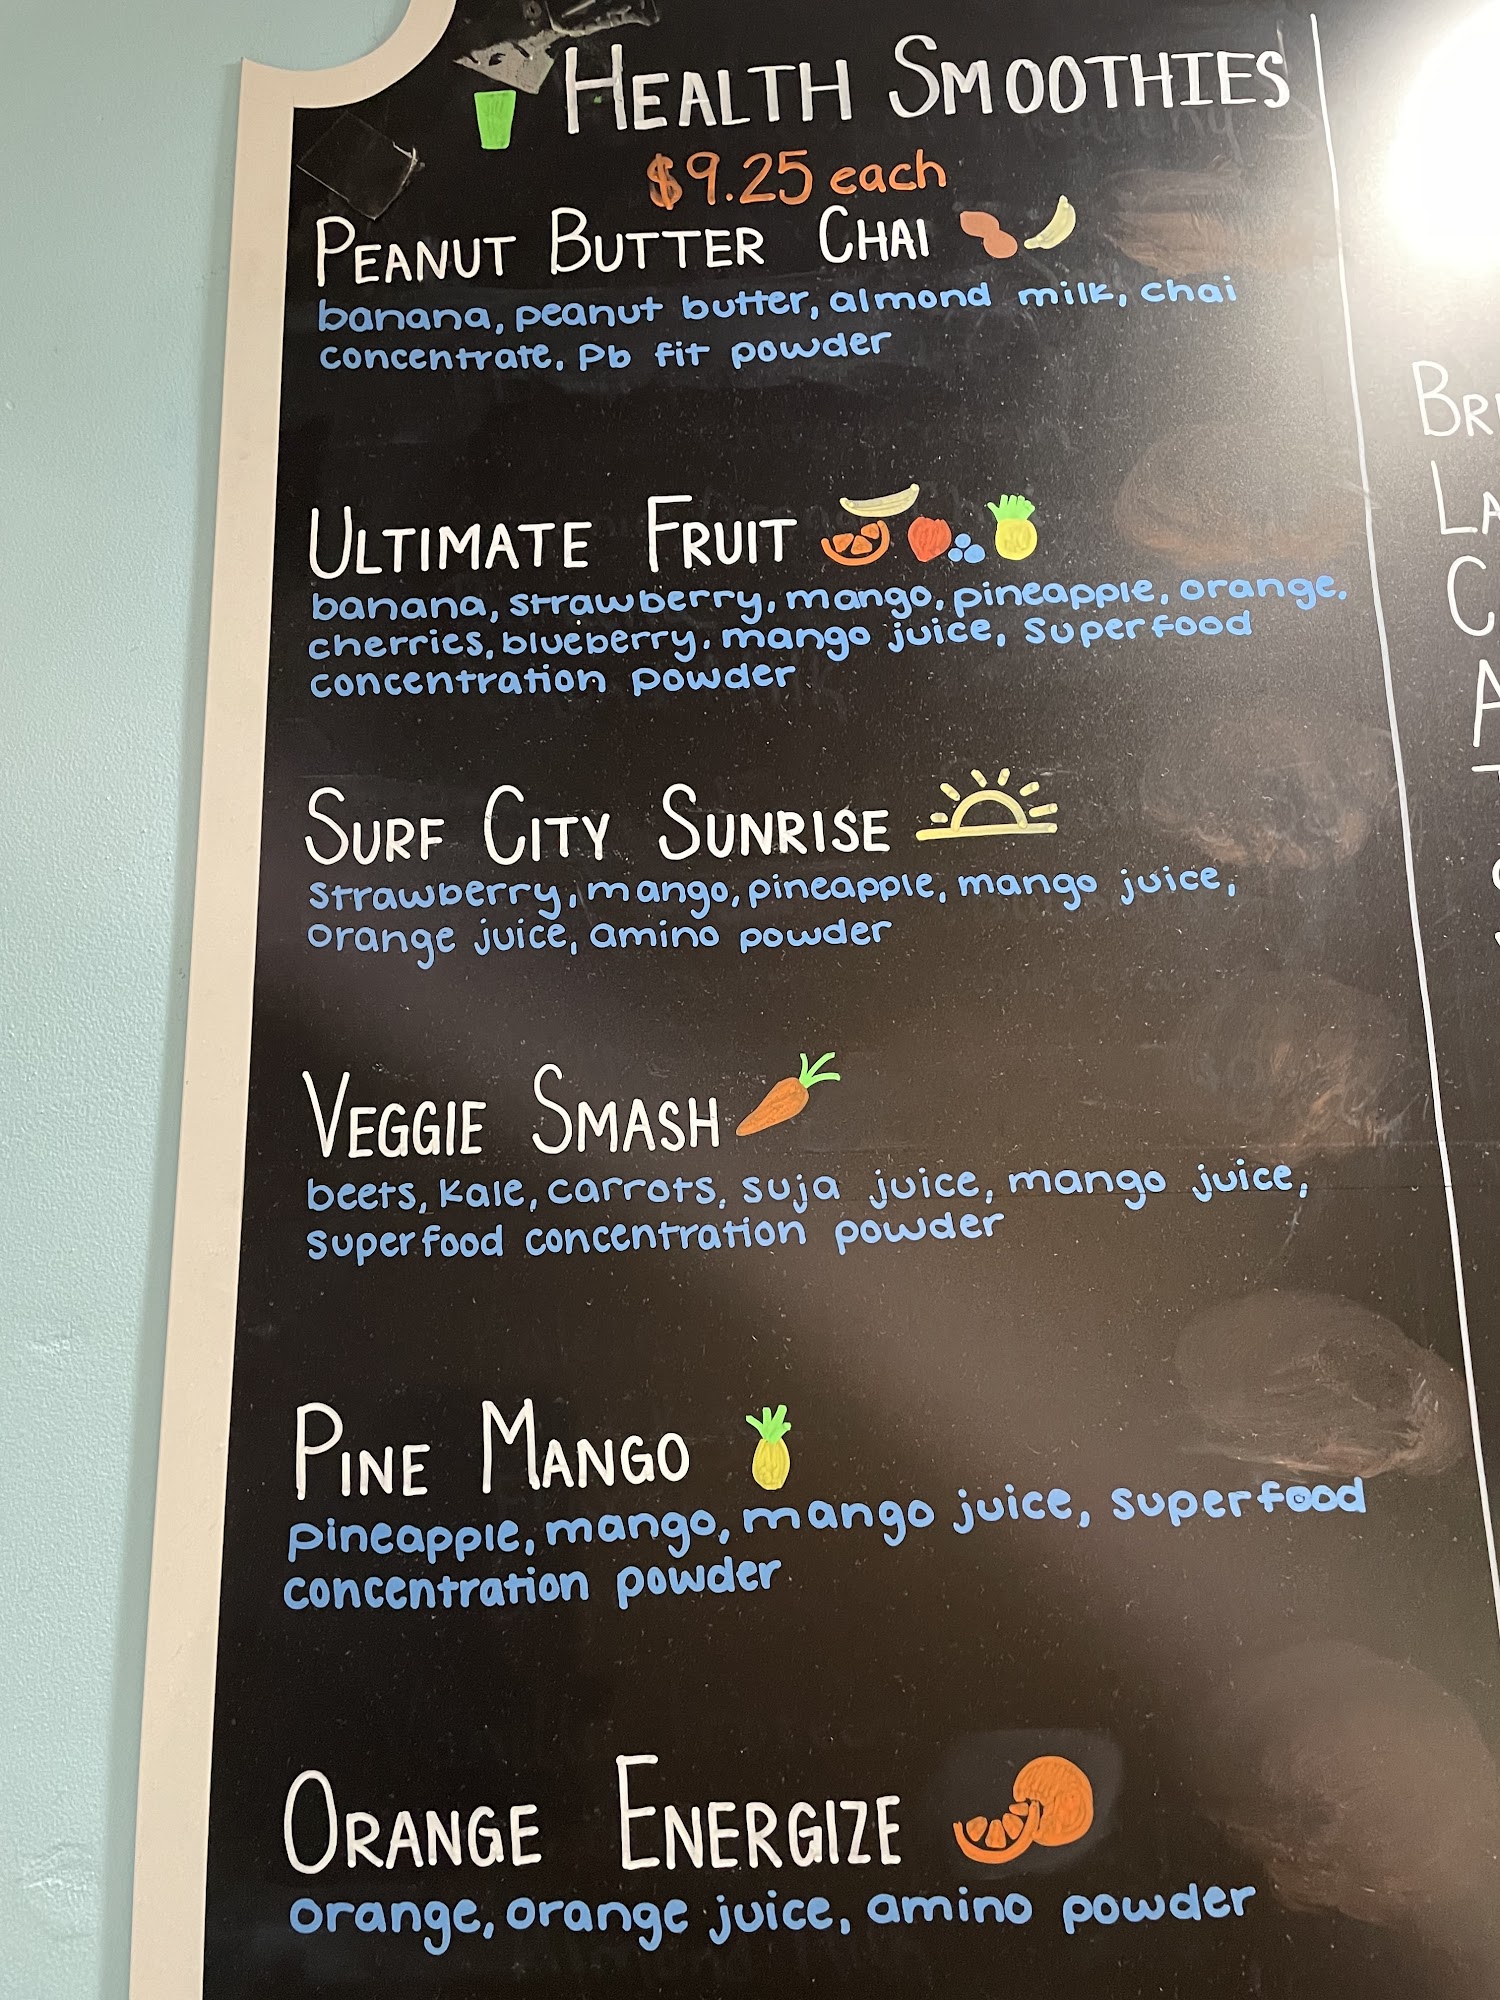 HEALTH SMOOTHIES
$9.25 each
PEANUT BUTTER CHAI
banana, peanut butter, almond milk, chai
concentrate, Pb fit powder
ULTIMATE FRUIT
banana, strawberry, mango, pineapple, orange,
cherries, blueberry, mango juice, superfood
concentration powder
SURF CITY SUNRISE
strawberry, mango, pineapple, mango juice,
orange juice, amino powder
VEGGIE SMASH
beets, kale, carrots, suja juice, mango juice,
superfood concentration powder
PINE MANGO
pineapple, mango, mango juice, superfood
concentration powder
ORANGE ENERGIZE
orange, orange juice, amino powder